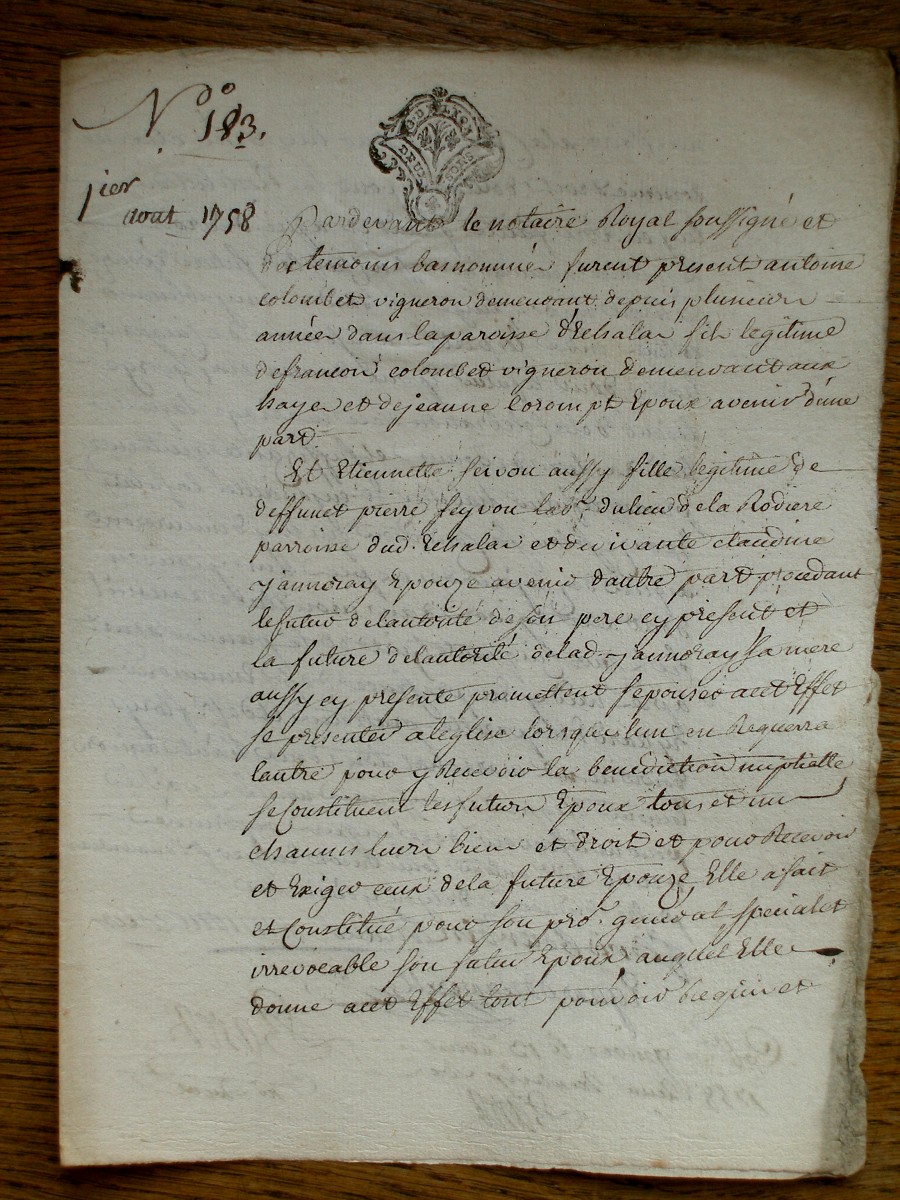 No
183.
1ier
aout 1758
G. DE LYON
DEUX SOLS
Pardevant le notaire Royal soussigné et
des temoins basnommés furent present antoine
colombet vigneron demeurant depuis plusieurs
années dans la paroisse d'Echalas fils legitime
de francois colombet vigneron demeurant aux
hayes et de jeanne lorompt Epoux avenir d'une
part.
Et Etiennette seivou aussy fille legitime de
deffunct pierre seyvou labr. du lieu de la Rodiere
parroisse dud. Echalas et de vivante claudine
janneray Epouze avenir d'autre part procedant
le futur de lautorité de son pere cy present et
la future de lautorité de lad. janneray sa mere
aussy cy presente promettent sepouser acet Effet
se presenter a leglise lorsque lun en Requerra
lautre pour y Recevoir la benediction nuptialle
se Constituent les futurs Epoux tous et un
chacuns leurs biens et droit et pour Recevoir
et Exiger ceux de la future Epouze, Elle a fait
et Constitué pour son pror. general special et
irrevocable son futur Epoux, auquel Elle
donne acet Effet tout pouvoir Requis et